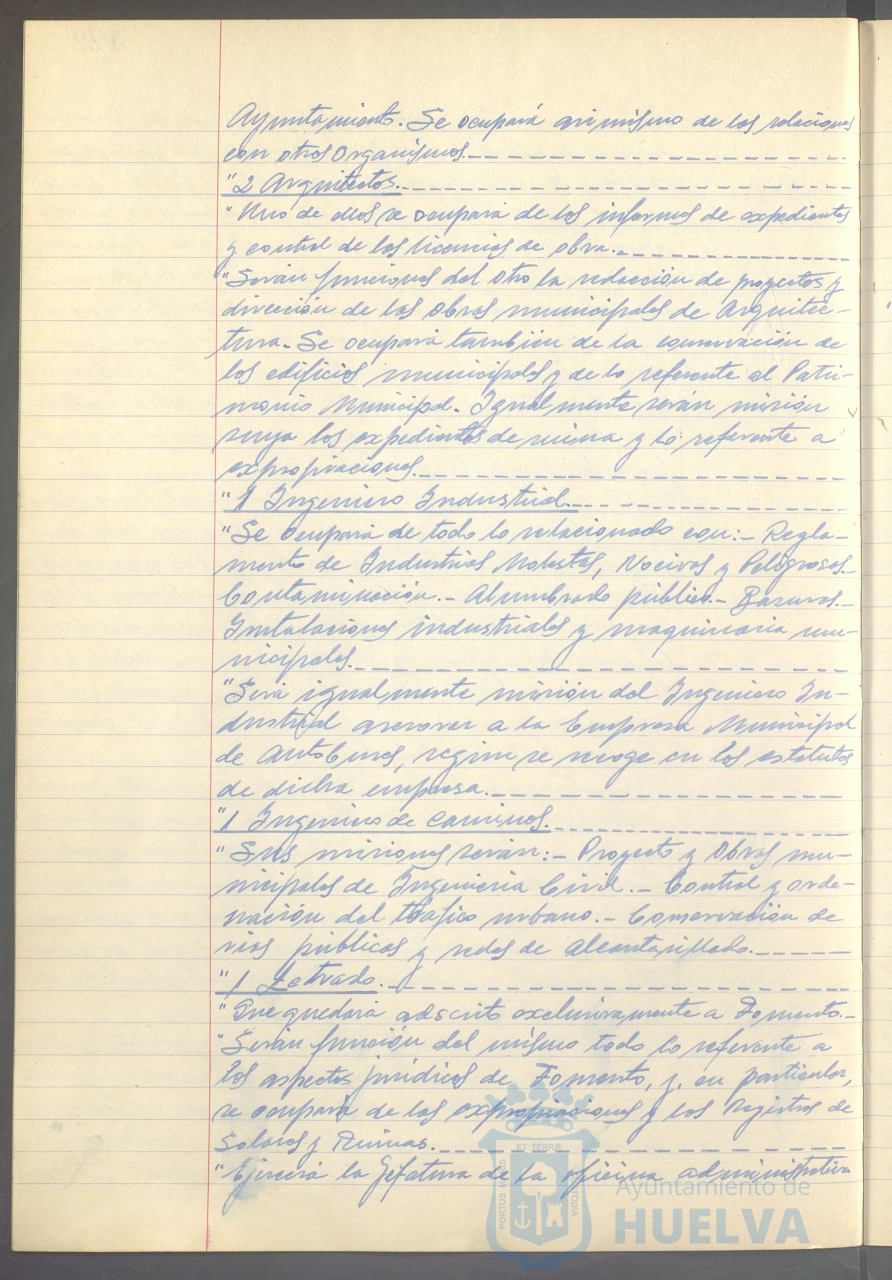 Ayuntamiento. Se ocupará asimismo de las relaciones
con otros Organismos.
"2 Arquitectos.
"Uno de ellos se ocupará de los informes de expedientes
y control de las licencias de obra.
"Serán funciones del otro la redacción de proyectos y
dirección de las obras municipales de Arquitec-
tura. Se ocupará también de la conservación de
los edificios municipales y de lo referente al Patri-
monio Municipal. Igualmente serán misión
suya los expedientes de ruina y lo referente a
expropiaciones.
"1 Ingeniero Industrial.
"Se ocupará de todo lo relacionado con:- Regla-
mento de Industrias Molestas, Nocivas y Peligrosas.-
Contaminación.- Alumbrado público.- Basuras.-
Instalaciones industriales y maquinaria mu-
nicipales.
"Será igualmente misión del Ingeniero In-
dustrial asesorar a la Empresa Municipal
de Autobuses, según se recoge en los estatutos
de dicha empresa.
"1 Ingeniero de Caminos.
"Sus misiones serán:- Proyecto y Obras mu-
nicipales de Ingeniería Civil.- Control y orde-
nación del tráfico urbano.- Conservación de
vías públicas y redes de Alcantarillado.
"1 Letrado.
"Que quedará adscrito exclusivamente a Fomento.-
"Serán función del mismo todo lo referente a
los aspectos jurídicos de Fomento, y, en particular,
se ocupará de las expropiaciones y los Registros de
Solares y Ruinas.
"Ejercerá la Jefatura de la oficina administrativa
PORTUS
ET TERRÆ
CUSTODIA
Ayuntamiento de
HUELVA